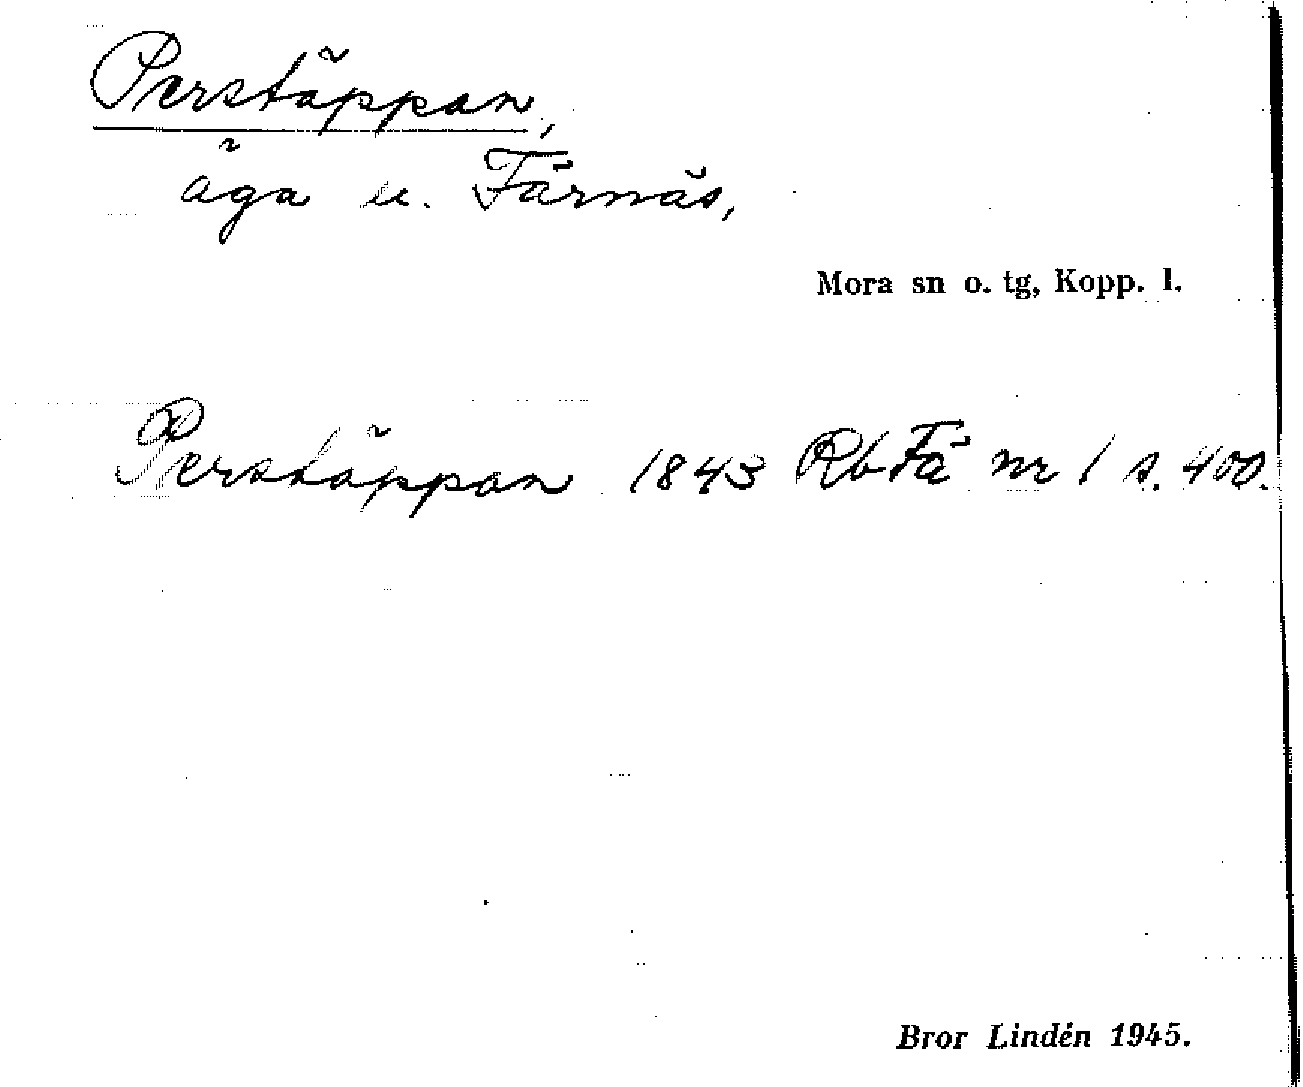 Perstäppan,
äga u. Färnäs,
Mora sn o. tg, Kopp. l.
Perstäppan 1843 Rb Fä nr 1 s. 400.
Bror Lindén 1945.